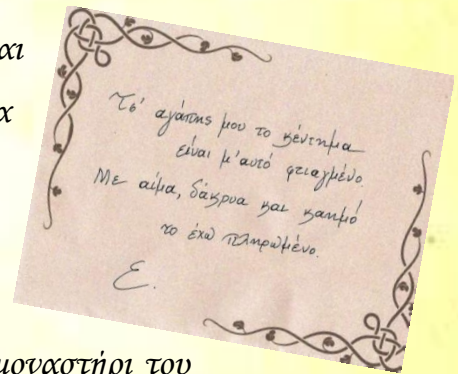 και
χ
Τσ' αγάπης μου το κέντημα
είναι μ' αυτό φτιαγμένο.
Με αίμα, δάκρυα και καημό
το έχω πληρωμένο.
Ε.
μοναστήρι του